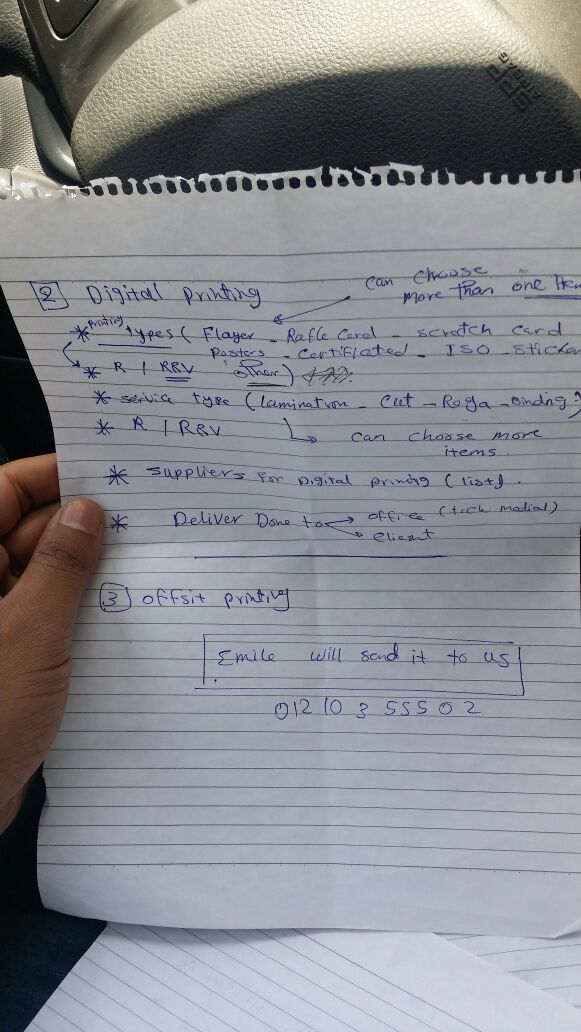 SRS
AIRBAG
can choose
more than one Item
2 Digital printing
* printing types ( Flayer - Rafle Card - scratch card
Posters - Certificated - ISO - Sticker
* R / RBV other )
* service type ( lamination - Cut - Rega - Binding )
* R / RBV can choose more
items.
* suppliers for Digital printing ( list ).
* Deliver Done to office (tech medial)
client
3 offsit printing
Emile will send it to us
012 10 3 555 0 2